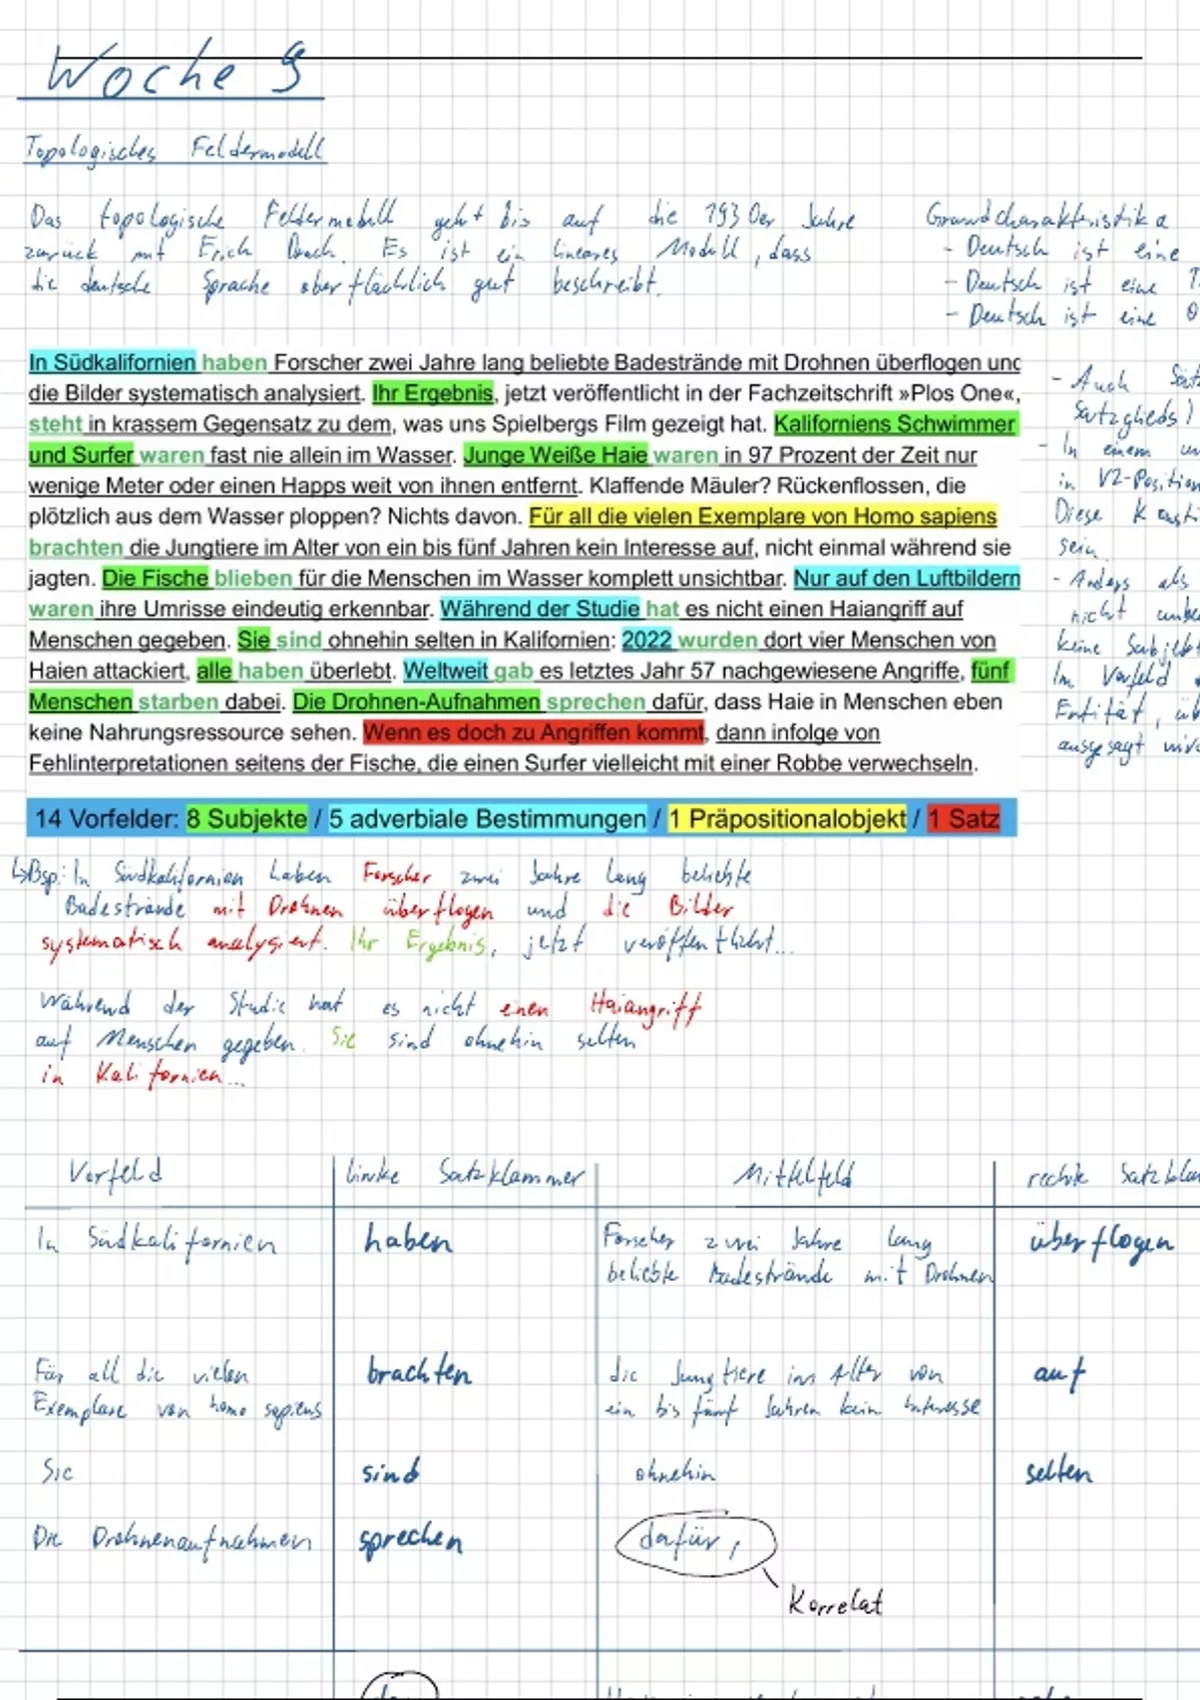 Woche 9
Topologisches Feldermodell
Das topologische Feldermodell geht bis auf die 1930er Jahre
zurück mit Erich Drach. Es ist ein lineares Modell, dass
die deutsche Sprache oberflächlich gut beschreibt.
Grundcharakteristika
- Deutsch ist eine
- Deutsch ist eine T
- Deutsch ist eine O
In Südkalifornien haben Forscher zwei Jahre lang beliebte Badestrände mit Drohnen überflogen und
die Bilder systematisch analysiert. Ihr Ergebnis, jetzt veröffentlicht in der Fachzeitschrift »Plos One«,
steht in krassem Gegensatz zu dem, was uns Spielbergs Film gezeigt hat. Kaliforniens Schwimmer
und Surfer waren fast nie allein im Wasser. Junge Weiße Haie waren in 97 Prozent der Zeit nur
wenige Meter oder einen Happs weit von ihnen entfernt. Klaffende Mäuler? Rückenflossen, die
plötzlich aus dem Wasser ploppen? Nichts davon. Für all die vielen Exemplare von Homo sapiens
brachten die Jungtiere im Alter von ein bis fünf Jahren kein Interesse auf, nicht einmal während sie
jagten. Die Fische blieben für die Menschen im Wasser komplett unsichtbar. Nur auf den Luftbildern
waren ihre Umrisse eindeutig erkennbar. Während der Studie hat es nicht einen Haiangriff auf
Menschen gegeben. Sie sind ohnehin selten in Kalifornien: 2022 wurden dort vier Menschen von
Haien attackiert, alle haben überlebt. Weltweit gab es letztes Jahr 57 nachgewiesene Angriffe, fünf
Menschen starben dabei. Die Drohnen-Aufnahmen sprechen dafür, dass Haie in Menschen eben
keine Nahrungsressource sehen. Wenn es doch zu Angriffen kommt, dann infolge von
Fehlinterpretationen seitens der Fische, die einen Surfer vielleicht mit einer Robbe verwechseln.
- Auch Sät
Satzglieds)
- In einem un
in V2-Position
Diese Konsti
sein.
- Anders als
nicht unbe
keine Subjekt
Im Vorfeld
Entität, üb
ausgesagt wird
14 Vorfelder: 8 Subjekte / 5 adverbiale Bestimmungen / 1 Präpositionalobjekt / 1 Satz
↳Bsp.: In Südkalifornien haben Forscher zwei Jahre lang beliebte
Badestrände mit Drohnen überflogen und die Bilder
systematisch analysiert. Ihr Ergebnis, jetzt veröffentlicht...
Während der Studie hat es nicht einen Haiangriff
auf Menschen gegeben. Sie sind ohnehin selten
in Kalifornien...
Vorfeld linke Satzklammer Mittelfeld rechte Satzklam
In Südkalifornien haben Forscher zwei Jahre lang überflogen
beliebte Badestrände mit Drohnen
Für all die vielen brachten die Jungtiere im Alter von auf
Exemplare von homo sapiens ein bis fünf Jahren kein Interesse
Sie sind ohnehin selten
Die Drohnenaufnahmen sprechen dafür,
Korrelat